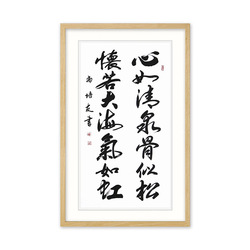 心如清泉骨似松
懷若大海氣如虹
培友書